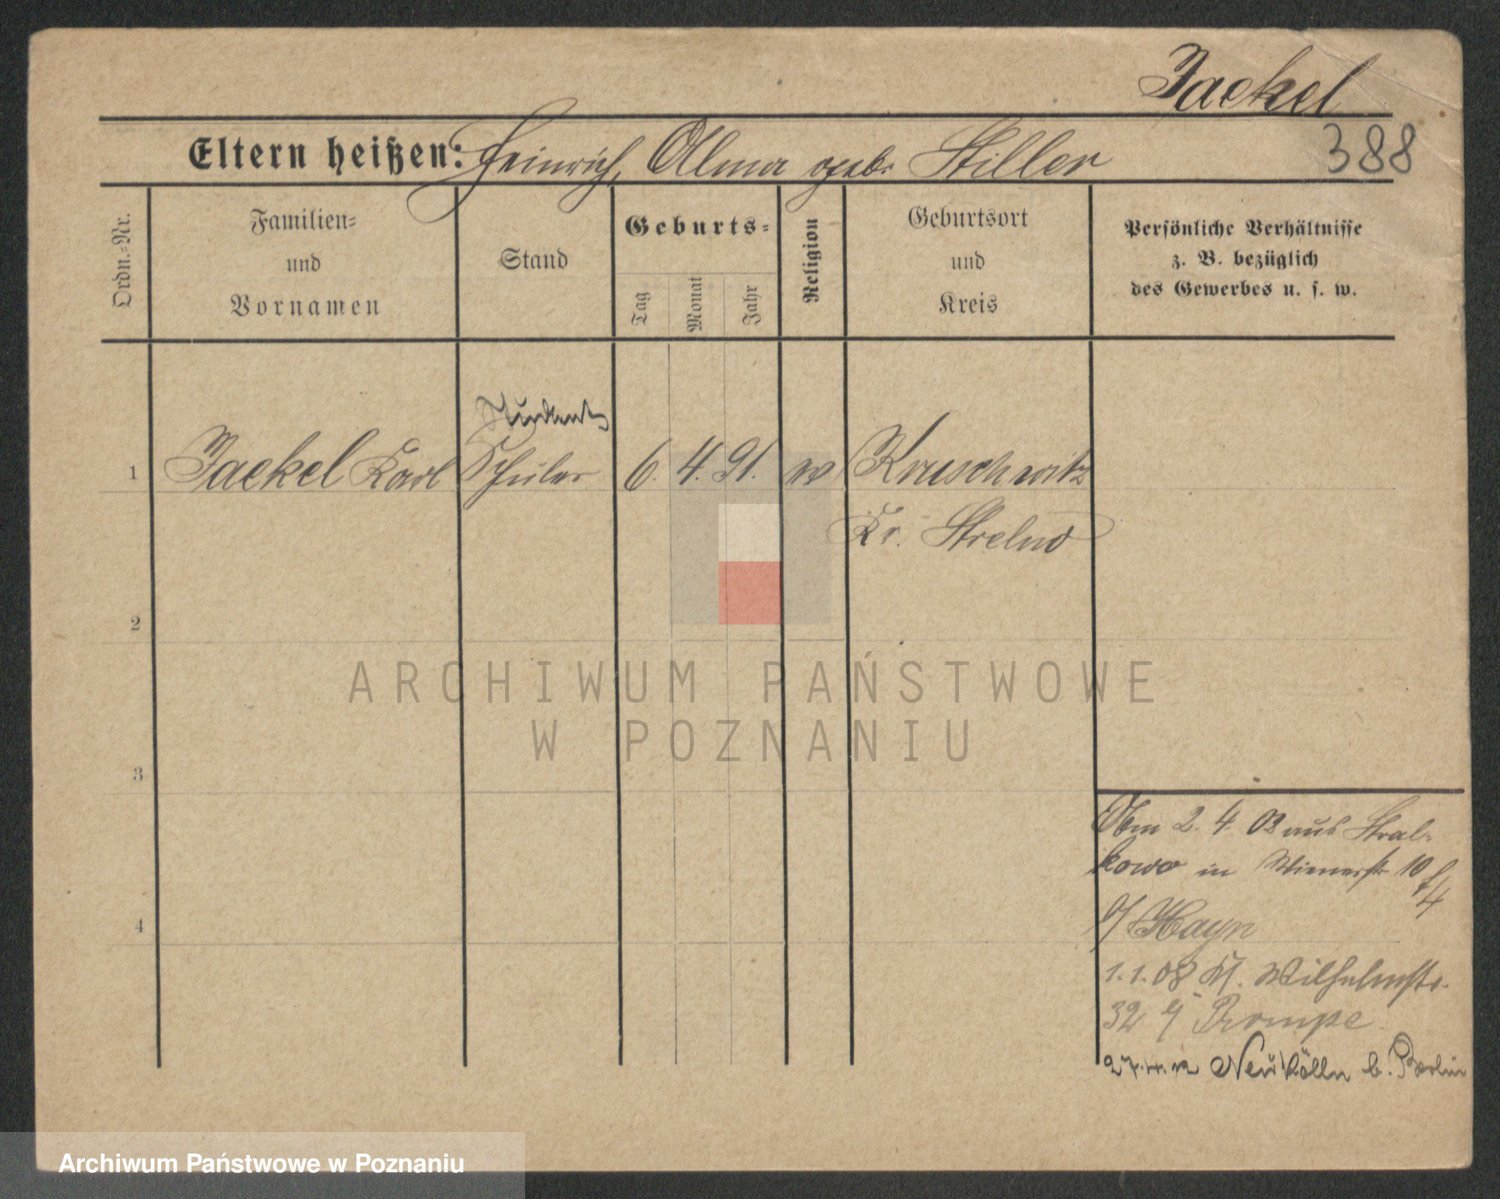 Jaekel
Eltern heißen: Heinrich, Alma geb. Stiller
388
Ordn.-Nr.
Familien-
und
Vornamen
Stand
Geburts-
Tag
Monat
Jahr
Religion
Geburtsort
und
Kreis
Persönliche Verhältnisse
z. B. bezüglich
des Gewerbes u. s. w.
Student
1 Jaekel Karl Schüler 6. 4. 91. Kruschwitz
Kr. Strelno
2
3
4
2. 4. 03 aus Stral-
kowo in Wienerstr 10
b/ Hayn
1.1.08 Kl. Wilhelmstr.
32 Prompe
Neukölln b. Berlin
ARCHIWUM PAŃSTWOWE
W POZNANIU
Archiwum Państwowe w Poznaniu